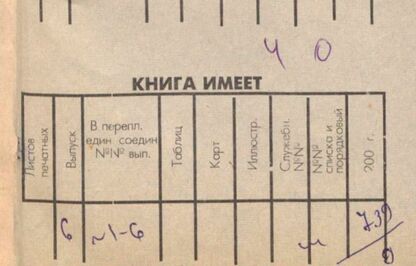 4 0
КНИГА ИМЕЕТ
Листов печатных
Выпуск
В перепл. един соедин №№ вып.
Таблиц
Карт
Иллюстр.
Служебн. №№
№№ списка и порядковый
200 г.
6 №1-6 739